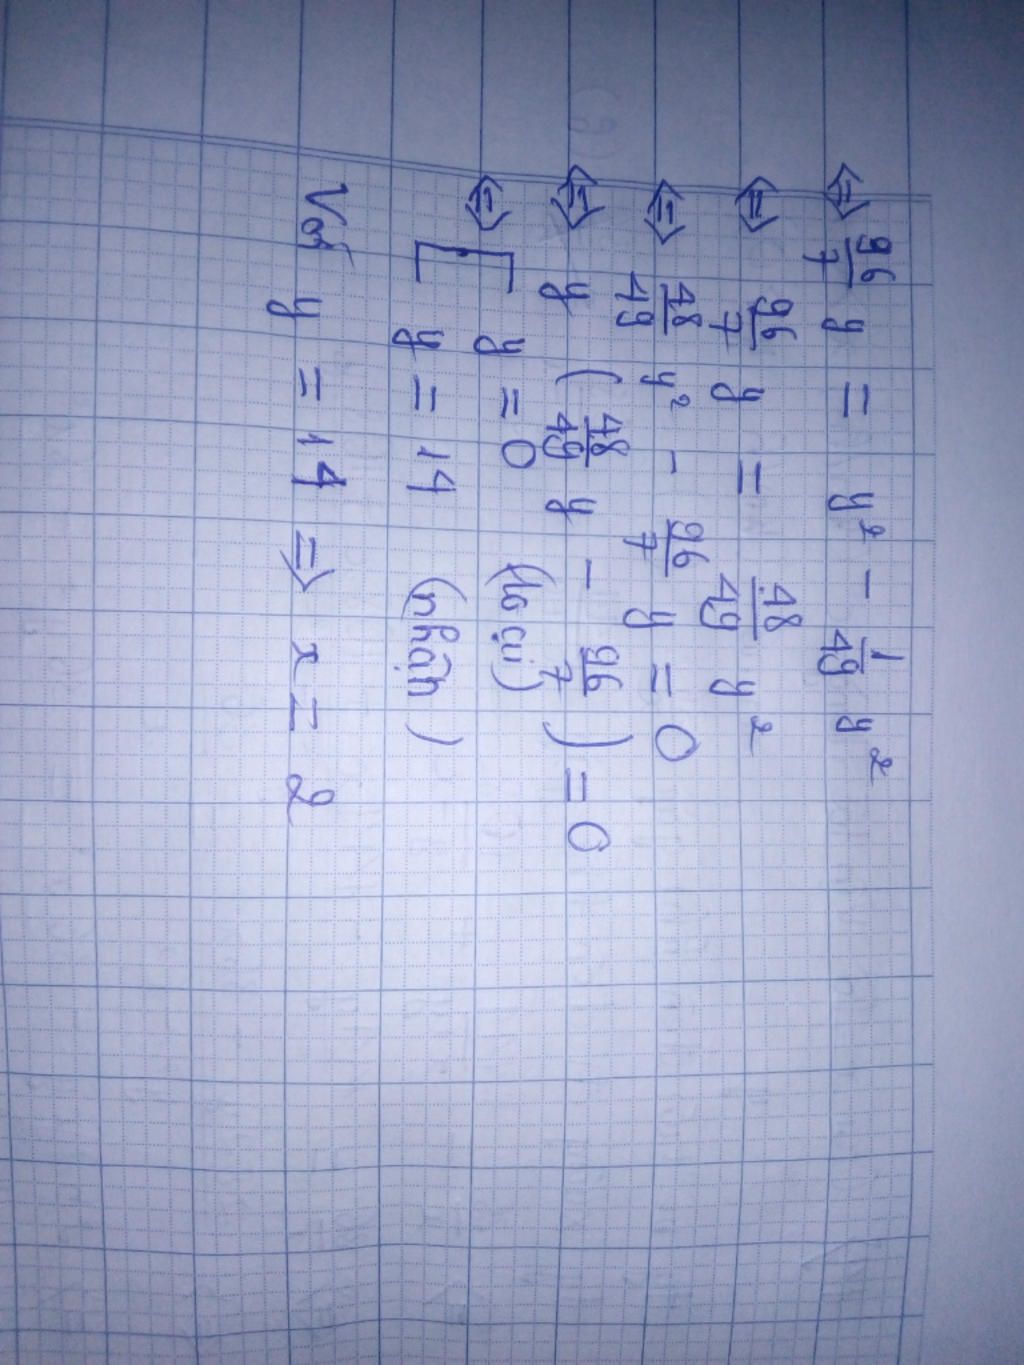 ⇔ 96/7 y = y² - 1/49 y²
⇔ 96/7 y = 48/49 y²
⇔ 48/49 y² - 96/7 y = 0
⇔ y (48/49 y - 96/7) = 0
⇔ [ y = 0 (loại)
y = 14 (nhận)
Với y = 14 ⇒ x = 2